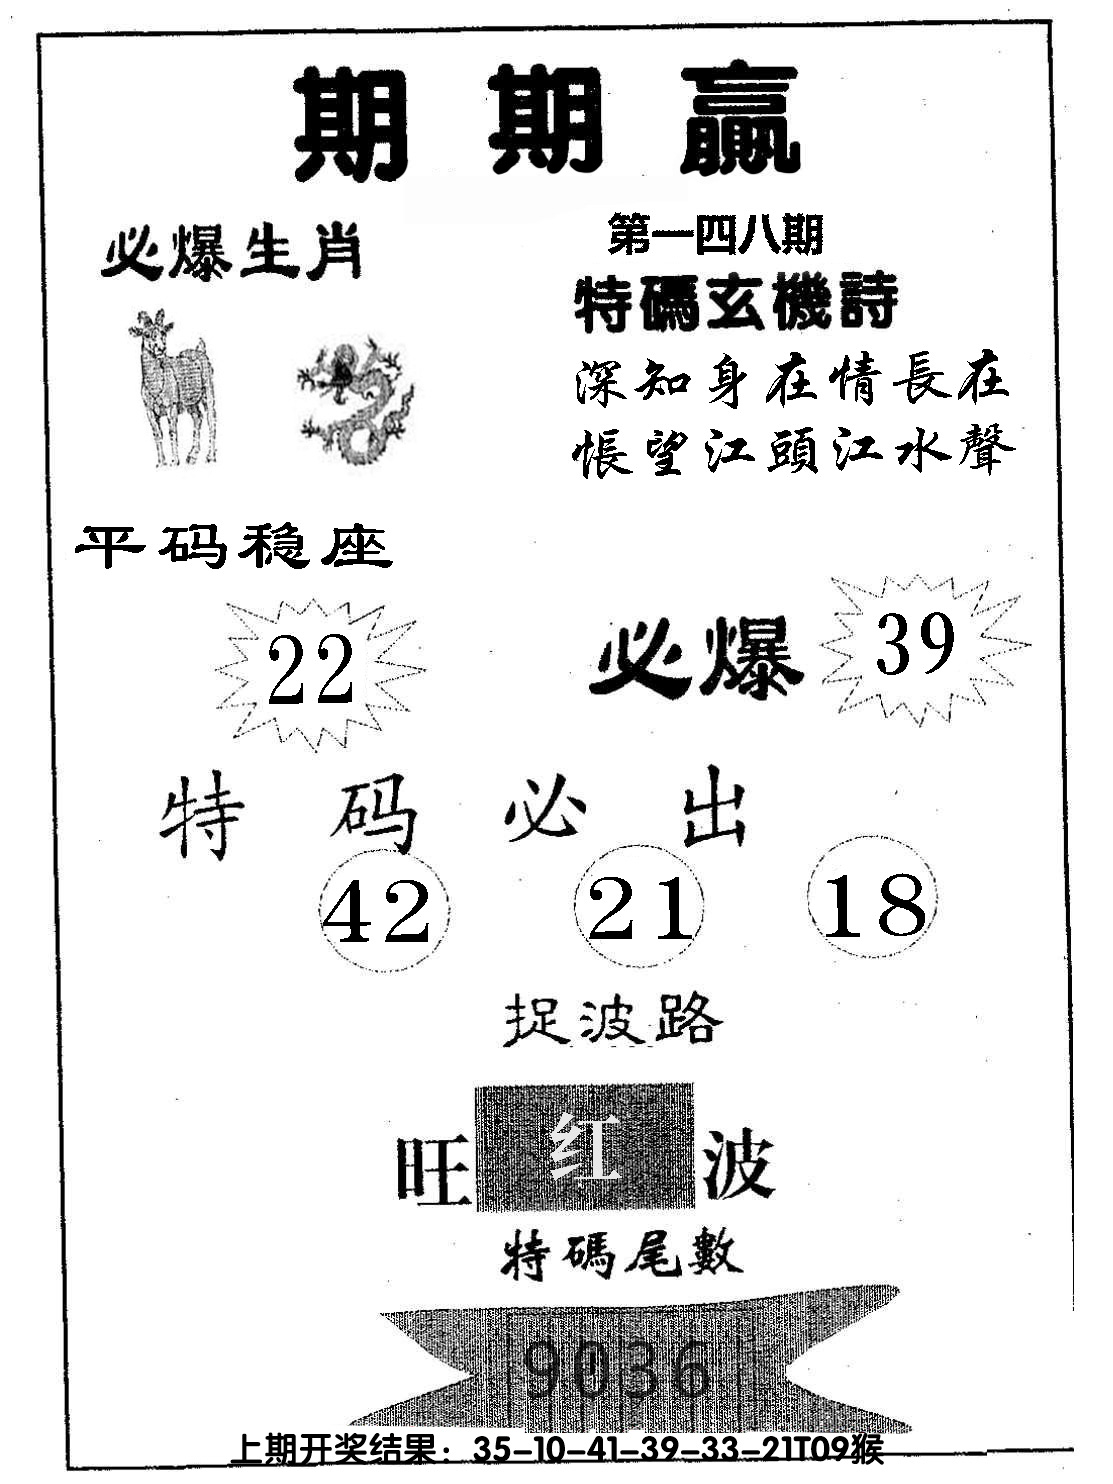 期期贏
第一四八期
必爆生肖
特碼玄機詩
深知身在情長在
悵望江頭江水聲
平码稳座
22
必爆 39
特码必出
42 21 18
捉波路
旺红波
特碼尾數
9036
上期开奖结果：35-10-41-39-33-21T09猴